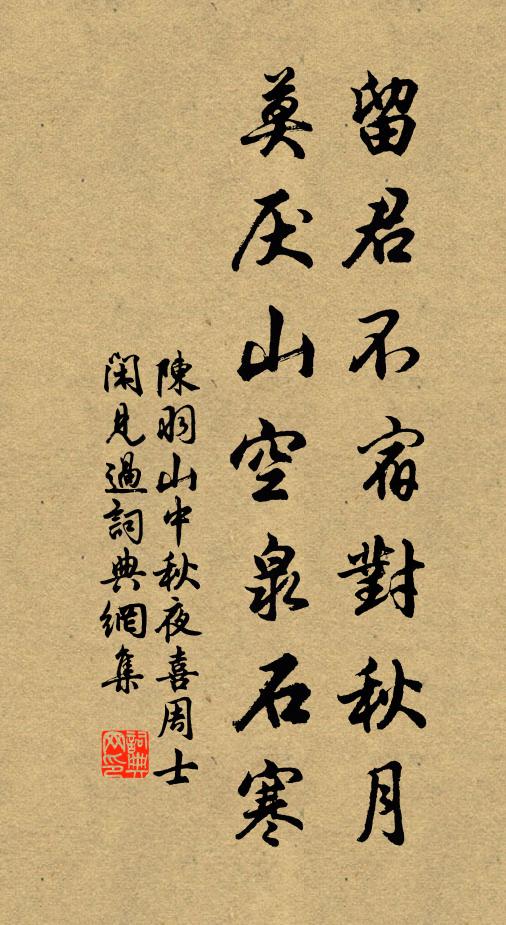 留君不宿對秋月
莫厌山空泉石寒
陳羽山中秋夜喜周士
閑見過詞典網集
詞典网印